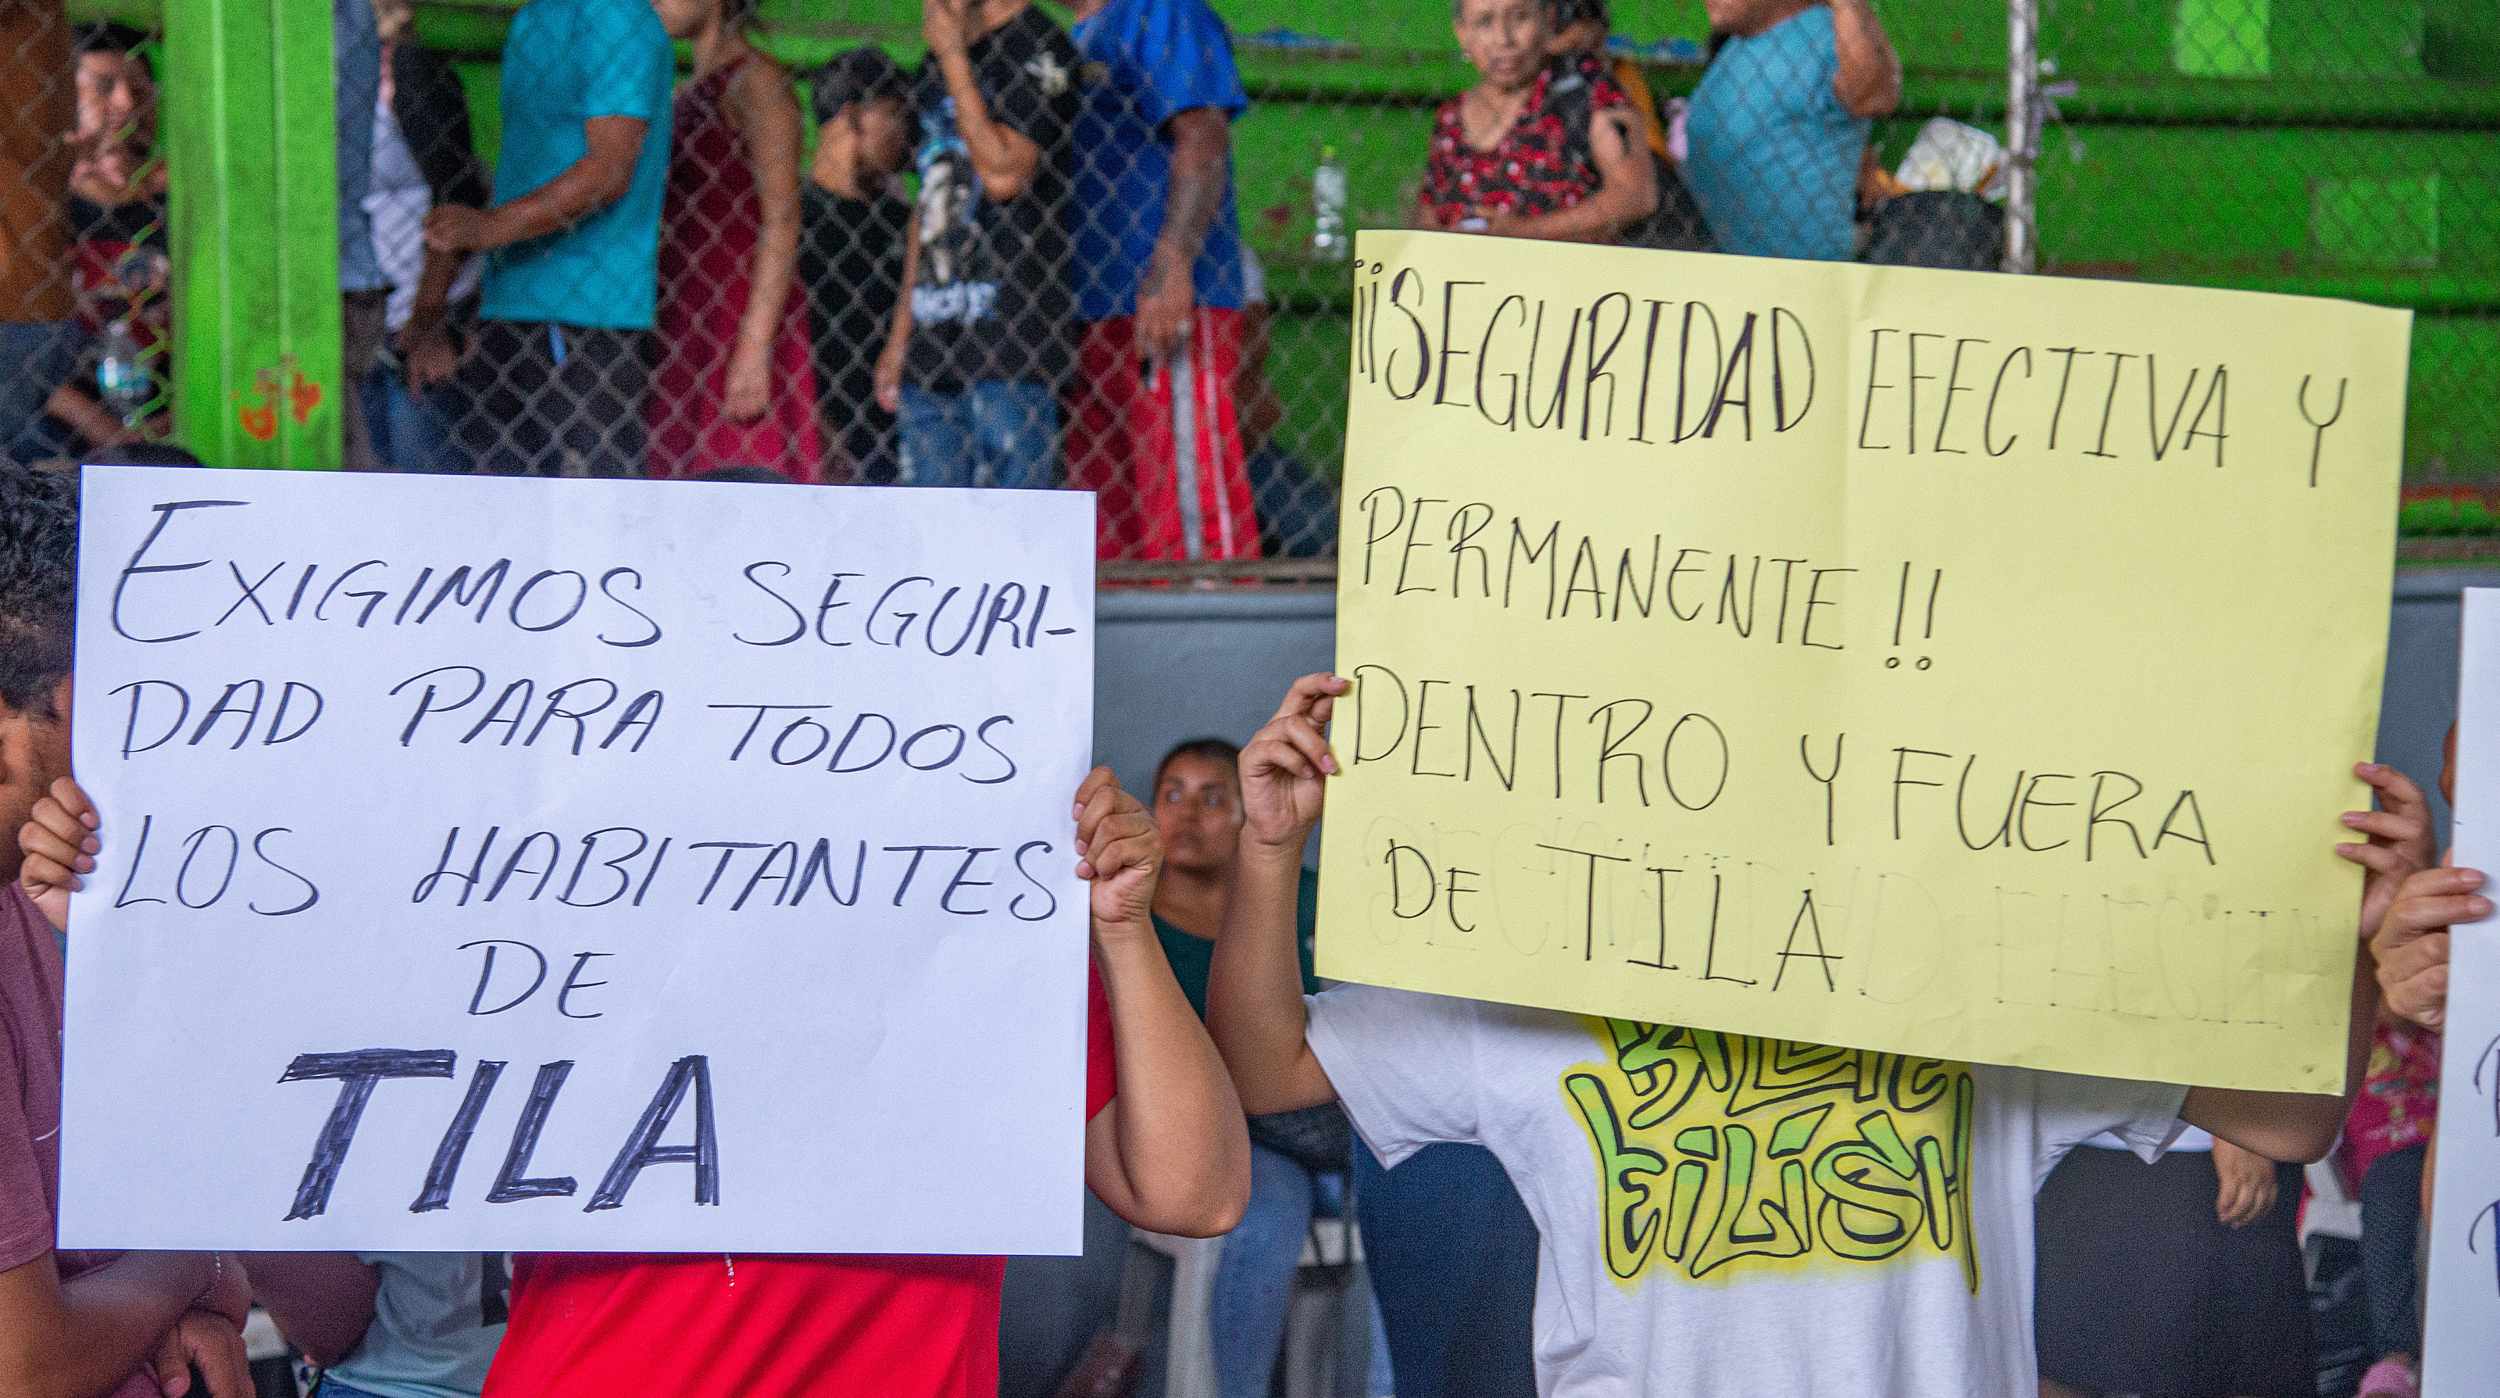 EXIGIMOS SEGURI-
DAD PARA TODOS
LOS HABITANTES
DE
TILA
¡¡SEGURIDAD EFECTIVA Y
PERMANENTE!!
DENTRO Y FUERA
DE TILA
BILLIE
EiLiSH